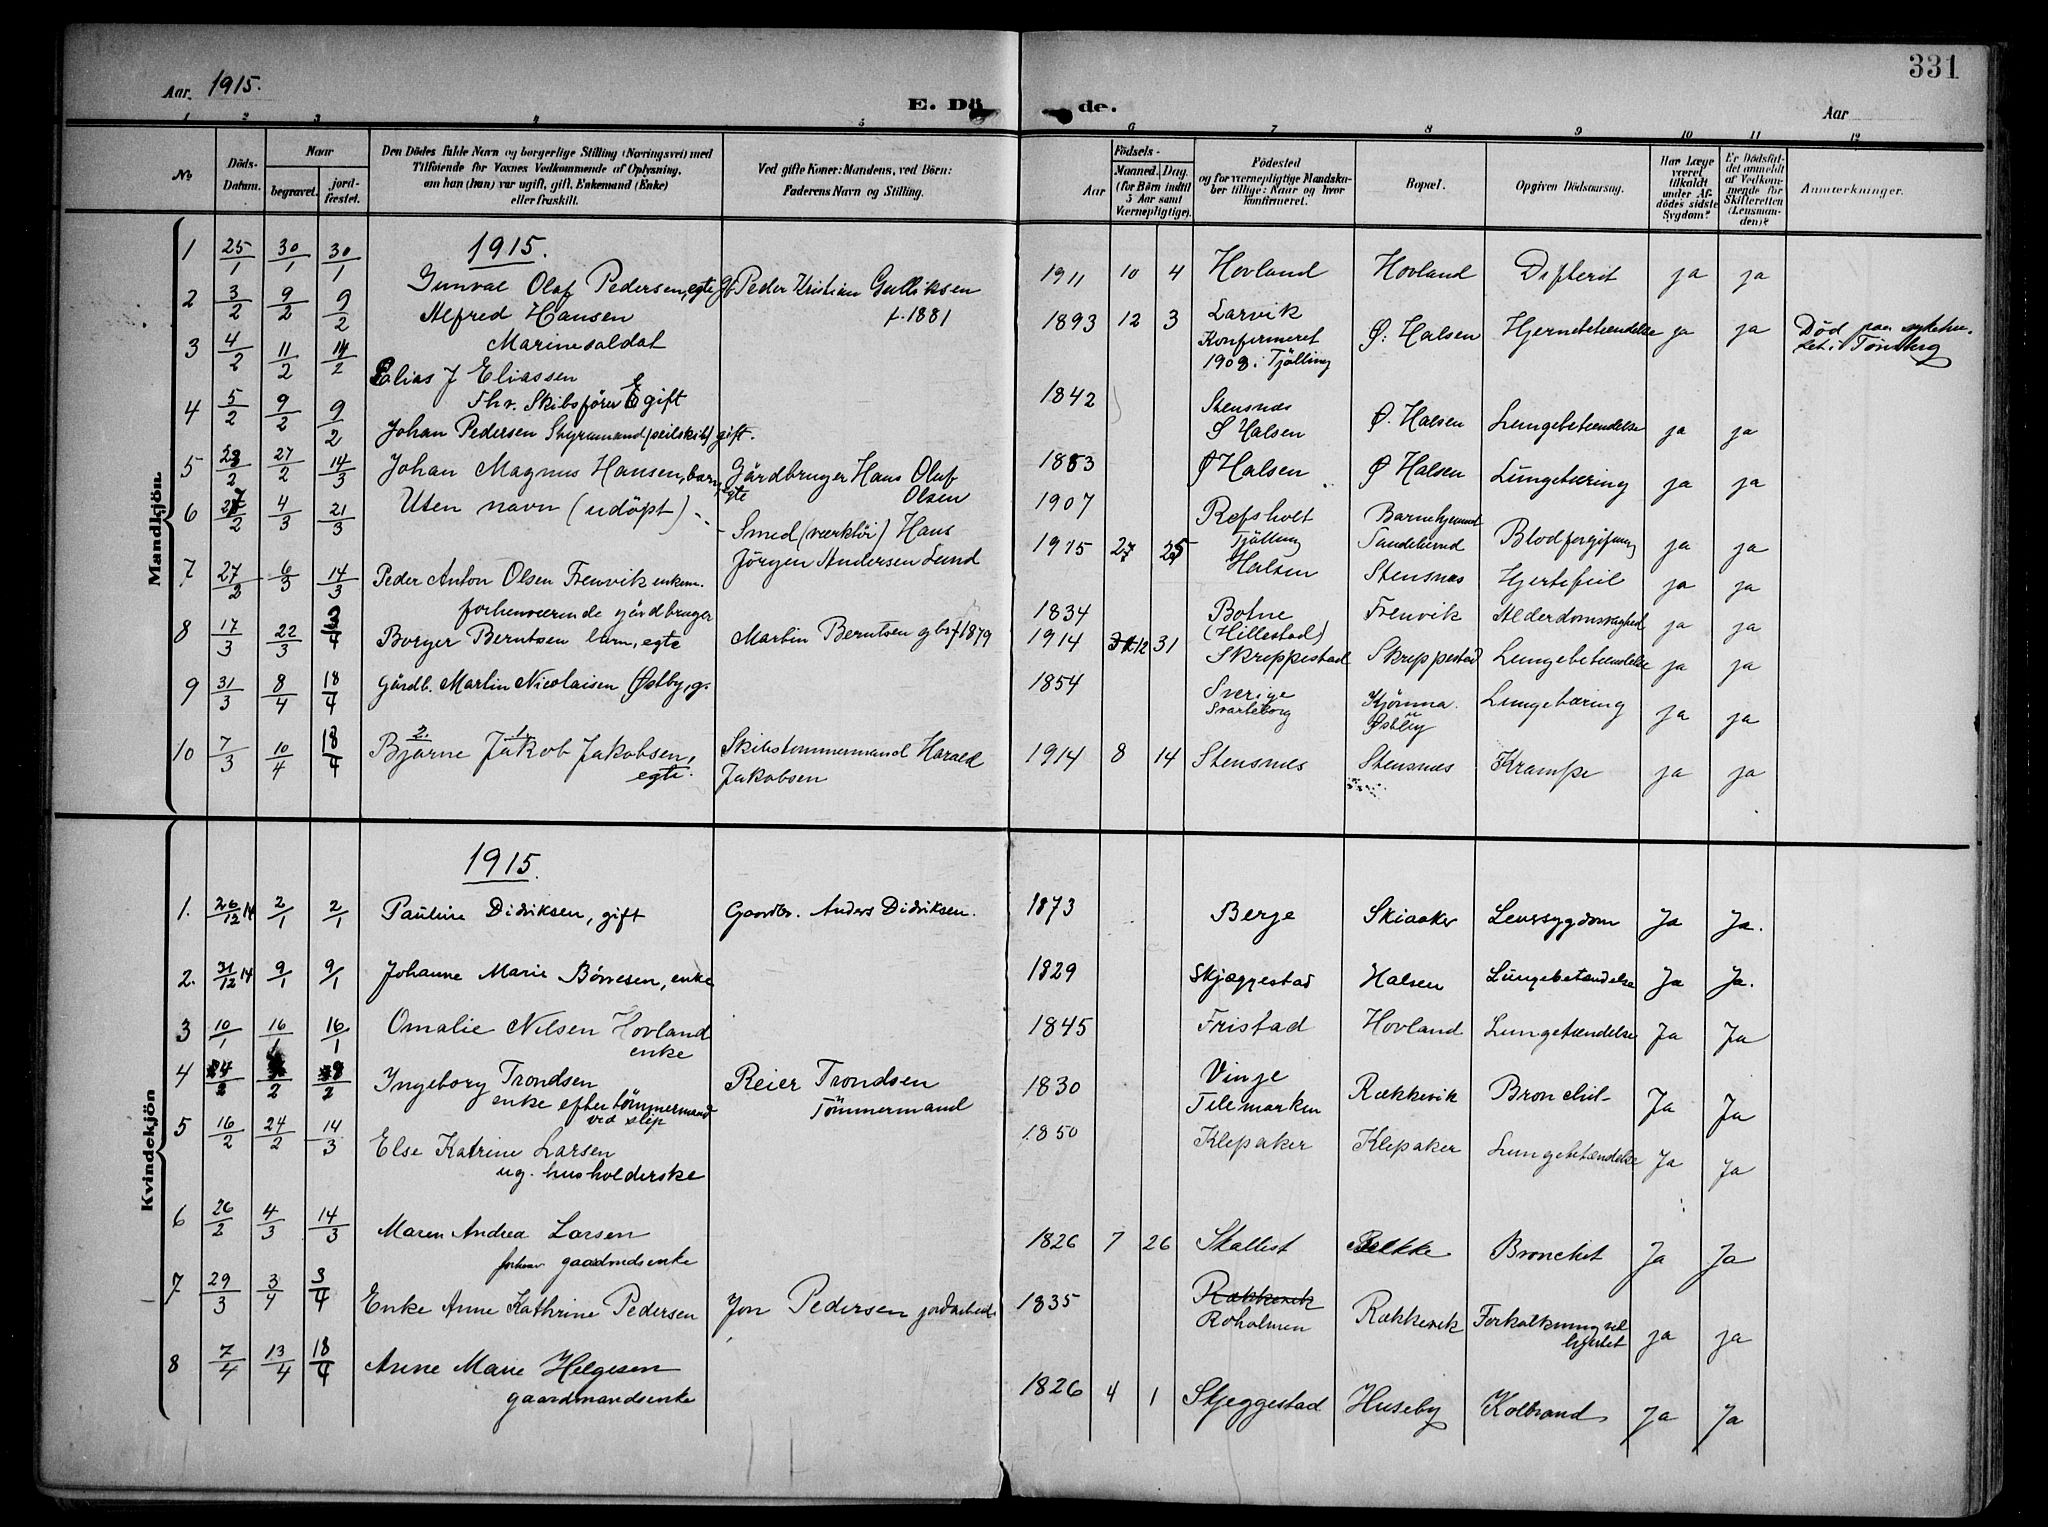 331
Aar 1915.
E. Dö de.
Aar
1 2 3 4 5 6 7 8 9 10 11 12
No. Döds-Datum. Naar begravet. jordfæstet. Den Dödes fulde Navn og borgerlige Stilling (Næringsvei) med Tilföiende for Voxnes Vedkommende af Oplysning, om han (hun) var ugift, gift, Enkemand (Enke) eller fraskilt. Ved gifte Koner: Mandens, ved Börn: Faderens Navn og Stilling. Födsels- Aar Maaned. Dag. (for Börn indtil 5 Aar samt Værnepligtige). Födested og for værnepligtige Mandskaber tillige: Naar og hvor konfirmeret. Bopæl. Opgiven Dödsaarsag. Har Læge været tilkaldt under Afdödes sidste Sygdom? Er Dödsfaldet anmeldt af Vedkommende for Skifteretten (Lensmanden)? Anmærkninger.
Mandkjön.
1915.
1 25/1 30/1 30/1 Gunval Olaf Pedersen, egte Gb Peder Kristian Gulliksen f. 1881 1911 10 4 Hovland Hovland Difterit ja ja
2 3/2 9/2 9/2 Alfred Hansen Marinesoldat 1893 12 3 Larvik Konfirmeret 1908 i Tjölling Ø. Halsen Hjernebetændelse ja ja Död paa i Tönsberg
3 4/2 11/2 14/2 Elias J Eliassen Fhv. Skibsförer gift 1842 Stensnæs S Halsen Ø. Halsen Lungebetændelse ja ja
4 5/2 9/2 9/2 Johan Pedersen Styremand (seilskib) gift. 1883 Ø Halsen Ø Halsen Lungetæring ja ja
5 23/2 27/2 14/3 Johan Magnus Hansen, barn, egte Gårdbruger Hans Oluf Olsen 1907 Refsholt Tjölling Barnehjemmet Sandelund Blodforgiftning ja ja
6 27/2 4/3 21/3 Uten navn (udöpt) Smed (værktöi) Hans Jörgen Andersen Lund 1915 2 25 Halsen Stensnæs Hjertefeil ja ja
7 27/2 6/3 14/3 Peder Anton Olsen Trenvik enkem. forhenværende gårdbruger 1834 Botne (Hillestad) Trenvik Alderdomsvaghed ja ja
8 17/3 22/3 3/4 Borger Berntsen barn, egte Martin Berntsen gbr f 1879 1914 12 31 Skreppestad Skreppestad Lungebetændelse ja ja
9 31/3 8/4 18/4 Gårdb. Martin Nicolaisen Østby, g. 1854 Sverige Svarteborg Kjömna Østby Lungetæring ja ja
10 7/3 10/4 18/4 Bjarne Jakob Jakobsen, egte. Skibstömmermand Harald Jakobsen 1914 8 14 Stensnæs Stensnæs Krampe ja ja
Kvindekjön
1915.
1. 26/12 14 2/1 2/1 Pauline Didriksen, gift Gaardbr. Anders Didriksen. 1873 Berje Skiaaker Leversygdom Ja Ja.
2. 31/12 14 9/1 9/1 Johanne Marie Börresen, enke 1829 Skjæggestad Halsen Lungebetændelse Ja Ja.
3 10/1 16/1 16/1 Omalie Nilsen Hovland enke 1845 Fristad Hovland Lungetændelse Ja Ja
4 Ingeborg Trondsen enke efter tömmermand ved slip Reier Trondsen Tömmermand 1830 Vinje Telemarken Rækkevik Bronchit Ja Ja
5 16/2 24/2 14/3 Else Katrine Larsen ug. husholderske 1850 Klepaker Klepaker Lungebetændelse Ja Ja
6 26/2 4/3 14/3 Maren Andrea Larsen forhenv gaardmdsenke 1826 7 26 Skallest Bekke Bronchit Ja Ja
7 29/3 3/4 3/4 Enke Anne Kathrine Pedersen Jon Pedersen jordarbeid. 1835 Rækkevik Roholmen Rækkevik Forkalkning ved hjertet ja ja
8 7/4 13/4 18/4 Anne Marie Helgesen gaardmandsenke 1826 4 1 Skjeggestad Huseby Kolbrand Ja Ja